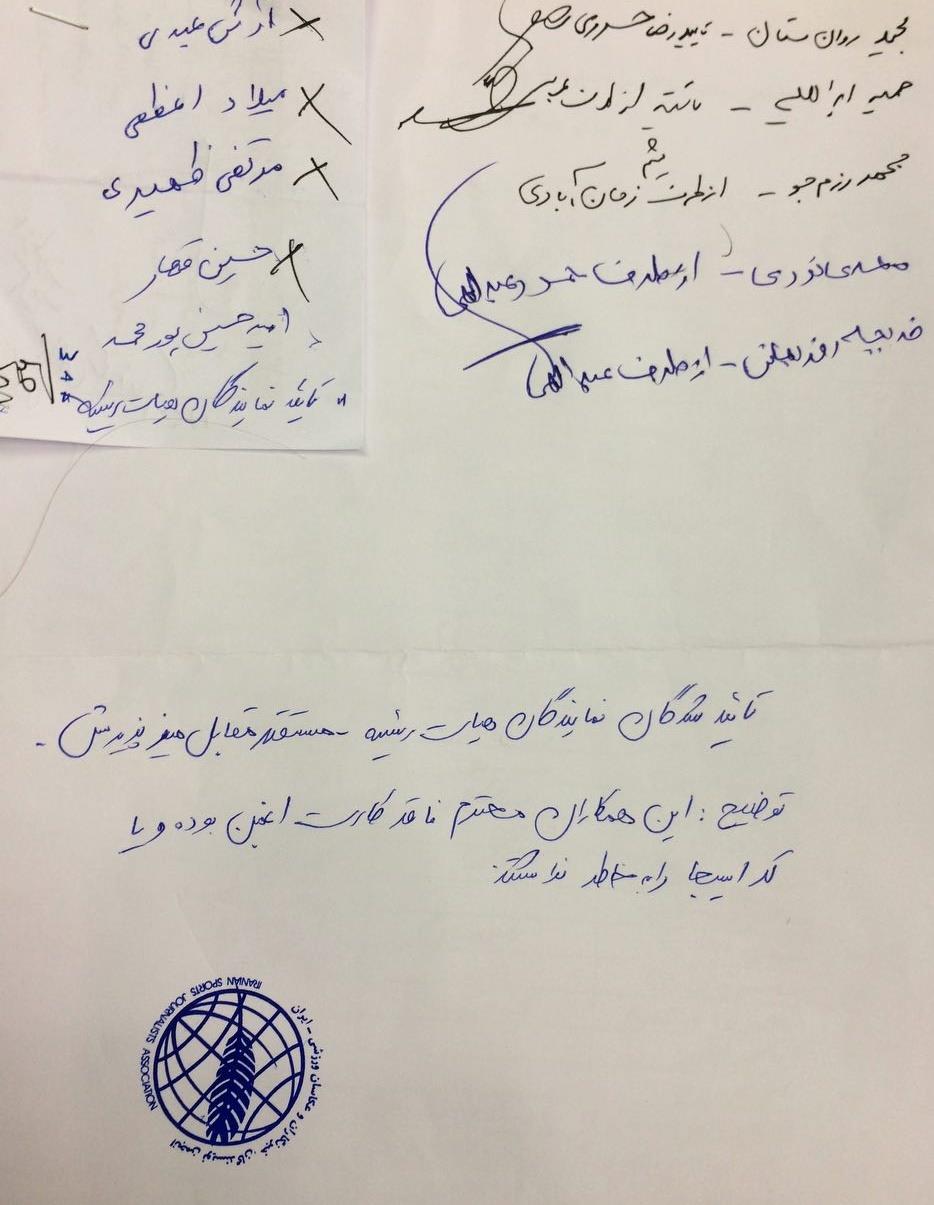 مجید روان ستان - تایید رضا خسروی
حمید ابراهیمی - تائید از طرف عربی
محمد رزم جو - از طرف زمان آبادی
مهدی نوری - از طرف و عبداللهی
خدیجه - از طرف عبداللهی
آرش عیدی
میلاد اعظمی
مرتضی ظهیری
حسین قهار
امیرحسین پورمحمد
تائید نمایندگان هیات رئیسه
تائید شدگان نمایندگان هیات رئیسه - مستقر مقابل میز پذیرش .
توضیح : این همکاران محترم فاقد کارت انجمن بوده و یا
کد اسیجا را به خاطر نداشتند
انجمن نویسندگان، خبرنگاران و عکاسان ورزشی - ایران
IRANIAN SPORTS JOURNALISTS ASSOCIATION